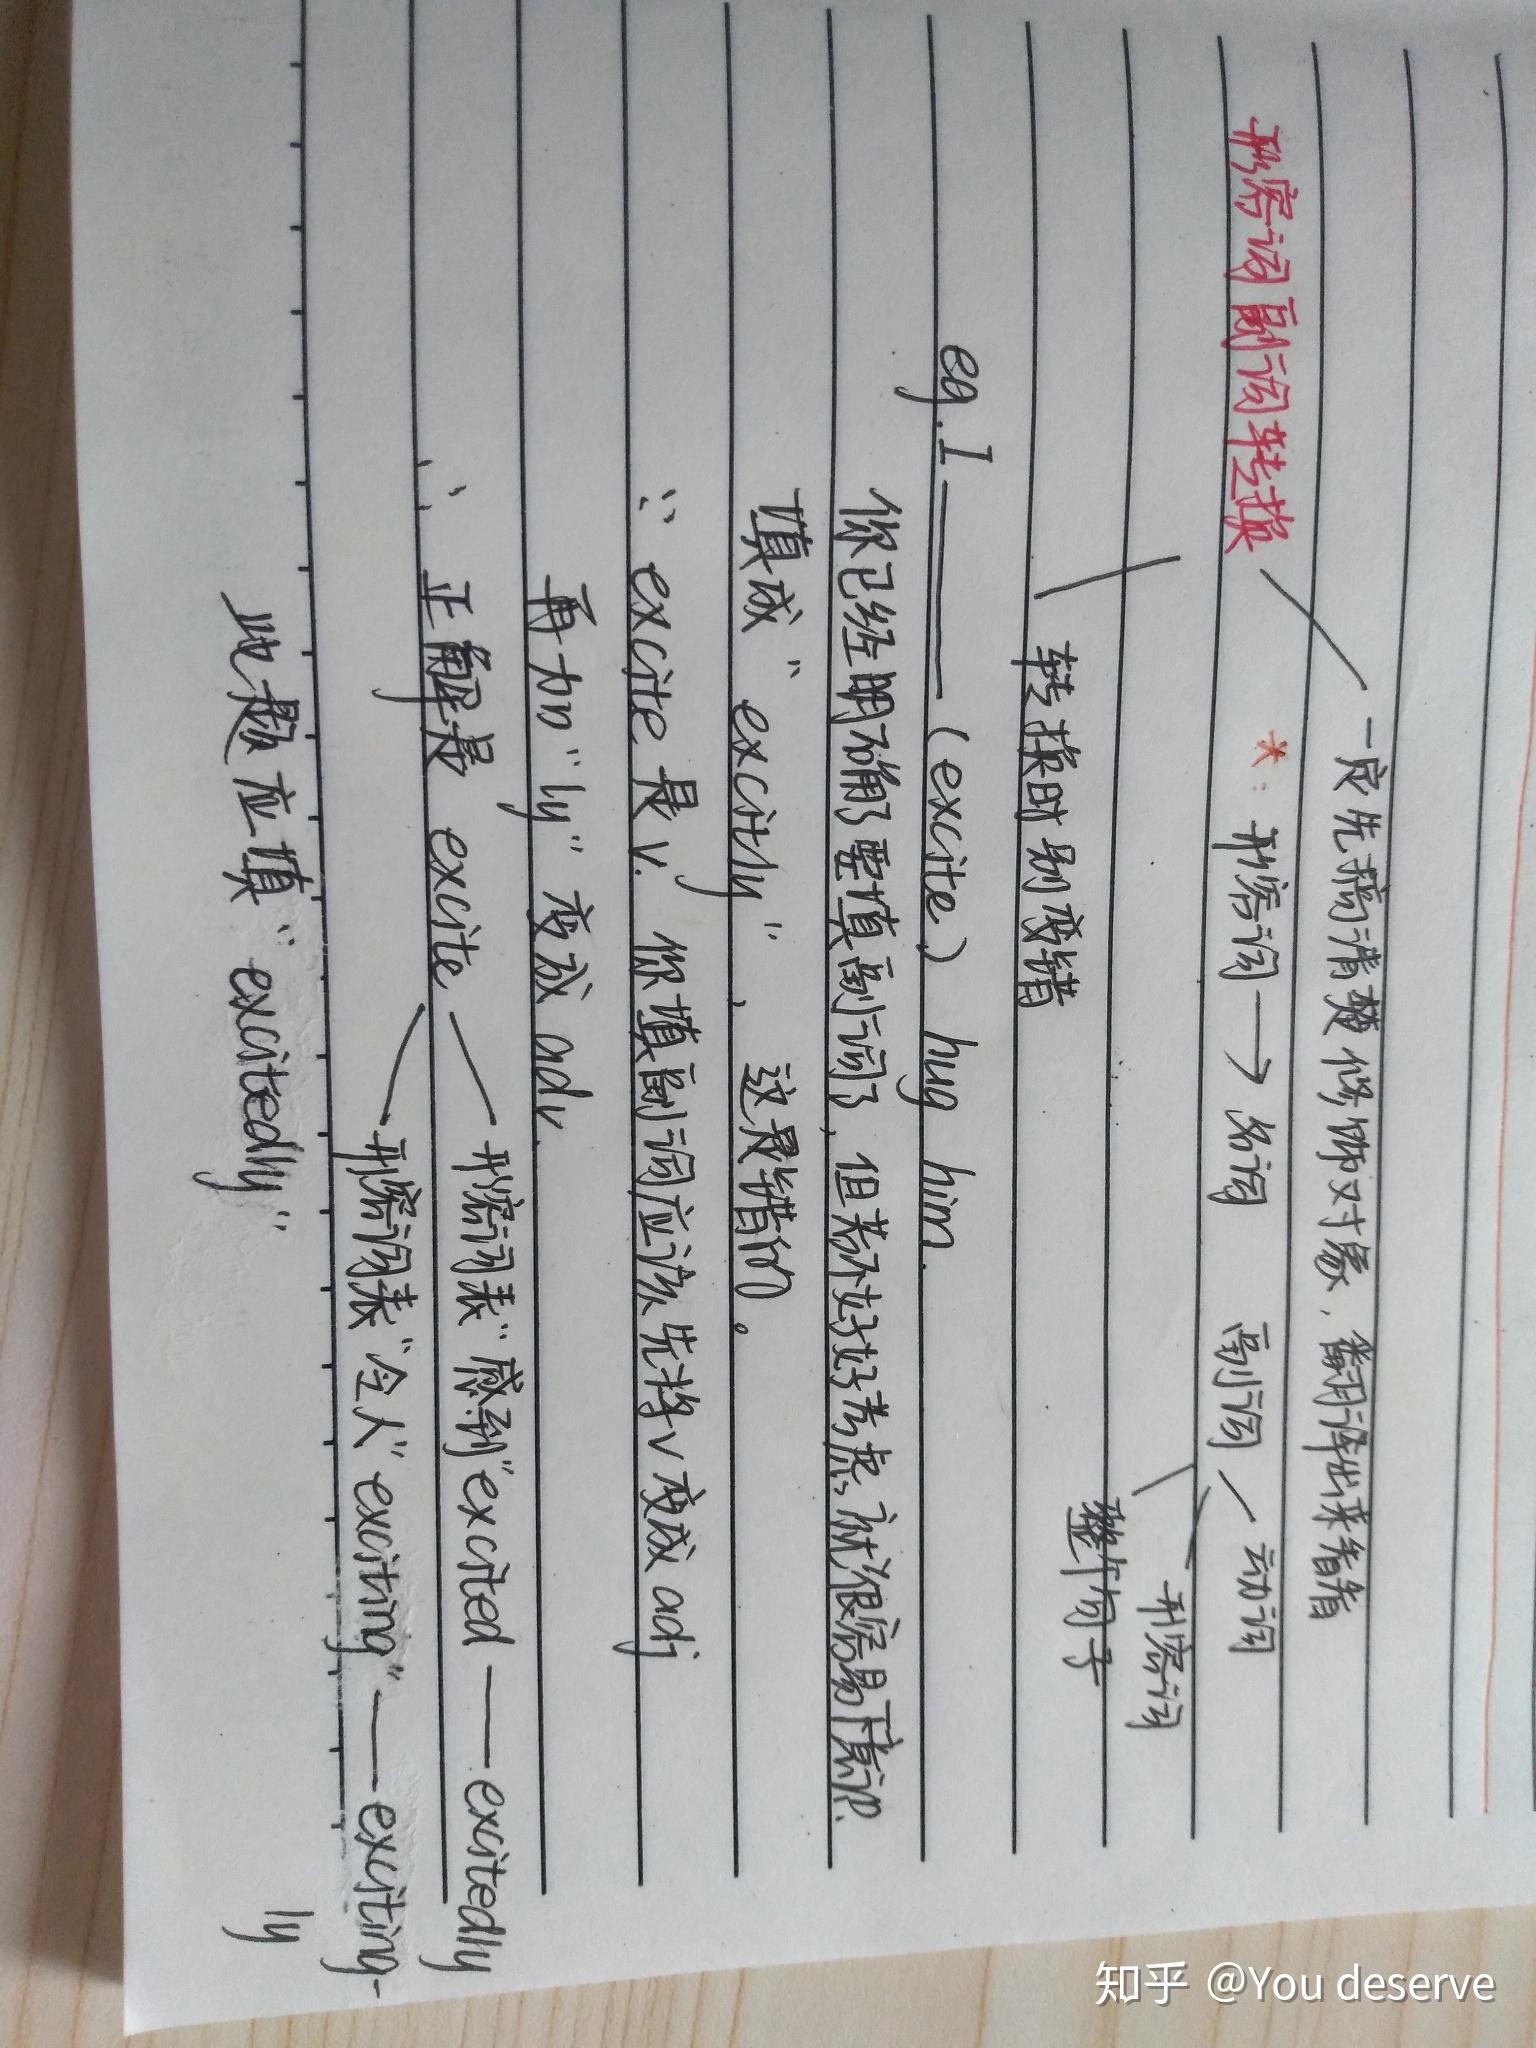 一定先搞清楚修饰对象，翻译出来看看
形容词副词转换
*：形容词→名词 副词 动词
形容词
整个句子
转换时别变错
eg. I ______ (excite) hug him.
你已经明确了要填副词了，但若不好好考虑，就很容易下意识
填成“excitly”，这是错的。
∵ excite是v. 你填副词应该先将v变成adj
再加“ly”变成adv.
∴ 正解是 excite
形容词表“感到”excited——excitedly
形容词表“令人”exciting”——exciting-
ly
此题应填“excitedly”
知乎 @You deserve